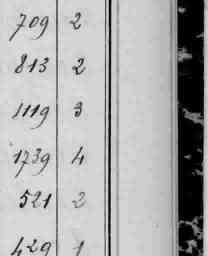 709 2
813 2
1119 3
1739 4
521 2
429 1